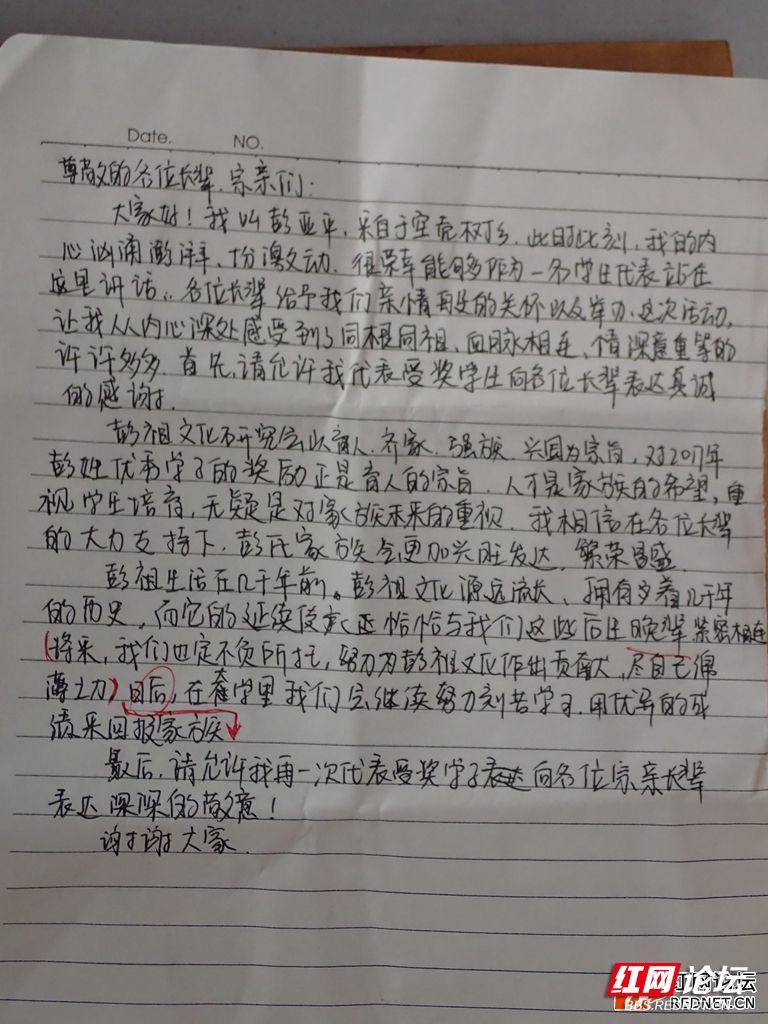 Date. NO.
尊敬的各位长辈、宗亲们:
大家好!我叫彭亚平,来自于空壳树乡.此时此刻,我的内
心汹涌澎湃、十分激动.很荣幸能够作为一名学生代表站在
这里讲话,各位长辈给予我们亲情般的关怀以及举办这次活动,
让我从内心深处感受到了同根同祖、血脉相连、情深意重等的
许许多多.首先,请允许我代表受奖学生向各位长辈表达真诚
的感谢.
彭祖文化研究会以育人、齐家、强族、兴国为宗旨,对2017年
彭姓优秀学子的奖励正是育人的宗旨.人才是家族的希望,重
视学生培育,无疑是对家族未来的重视.我相信在各位长辈
的大力支持下,彭氏家族会更加兴旺发达、繁荣昌盛.
彭祖生活在几千年前。彭祖文化源远流长、拥有着几千年
的历史,而它的延续传承正恰恰与我们这些后生晚辈紧密相连
(将来,我们也定不负所托,努力为彭祖文化作出贡献,尽自己绵
薄之力)日后,在大学里我们会继续努力刻苦学习.用优异的成
绩来回报家族
最后,请允许我再一次代表受奖学子向各位宗亲长辈
表达深深的敬意!
谢谢大家.
红网论坛
REDNET.CN
BBS.REDNET.CN